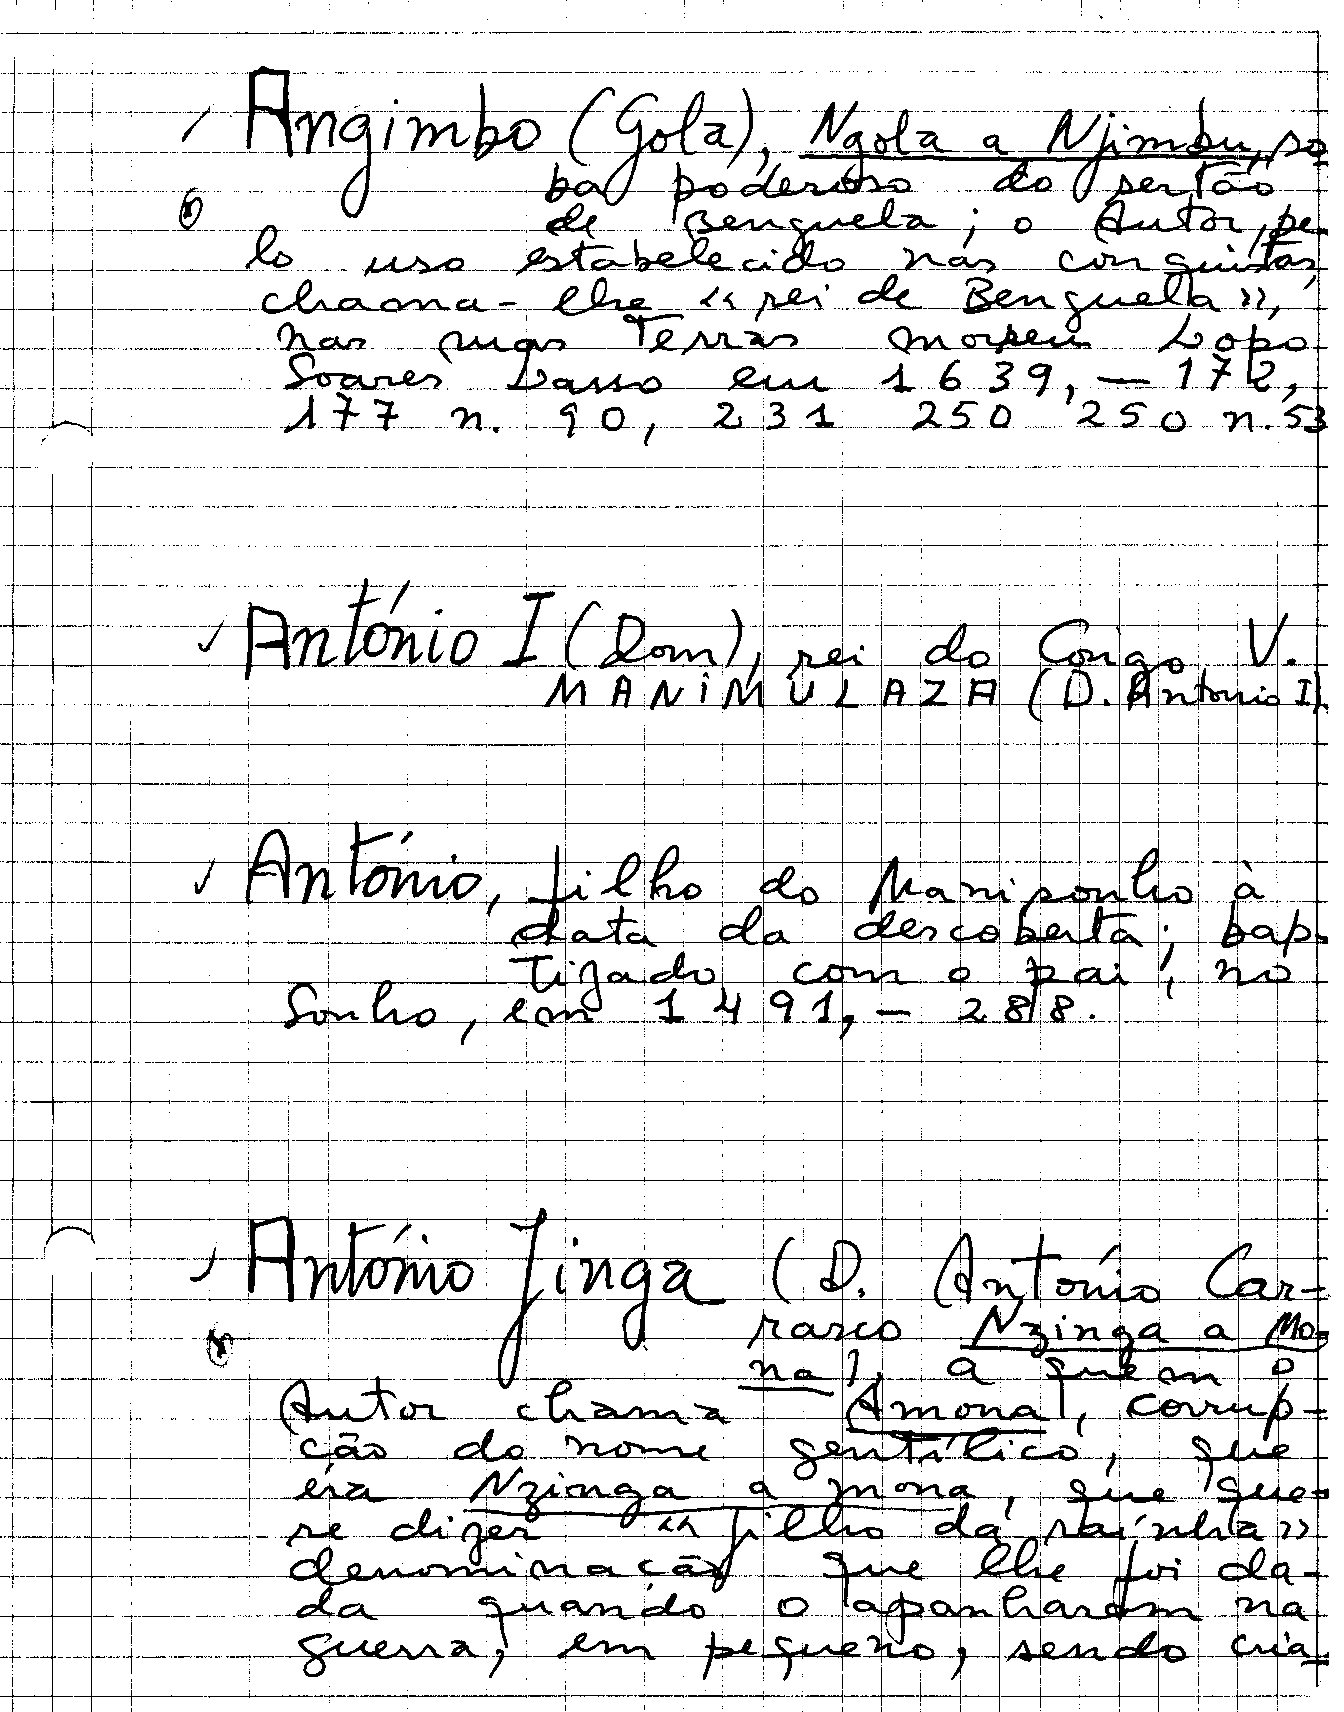 Angimbo (Gola), Ngola a Njimbu, so
ba poderoso do sertão
de Benguela; o Autor, pe-
lo uso estabelecido nas conquistas,
chama-lhe «rei de Benguela»,
nas suas Terras morreu Lopo
Soares Lasso em 1639, — 172,
177 n. 90, 231 250 250 n. 53
António I (Dom), rei do Congo, V.
MANIMULAZA (D. Antonio I).
António, filho do Manisonho à
data da descoberta; bap-
tizado com o pai, no
Sonho, em 1491, — 288.
António Jinga (D. António Car-
rasco Nzinga a Mo-
na), a quem o
Autor chama Amona, corrup-
ção do nome gentílico, que
era Nzinga a mona, que que-
re dizer «filho da rainha»
denominação que lhe foi da-
da quando o apanharam na
guerra, em pequeno, sendo cria-